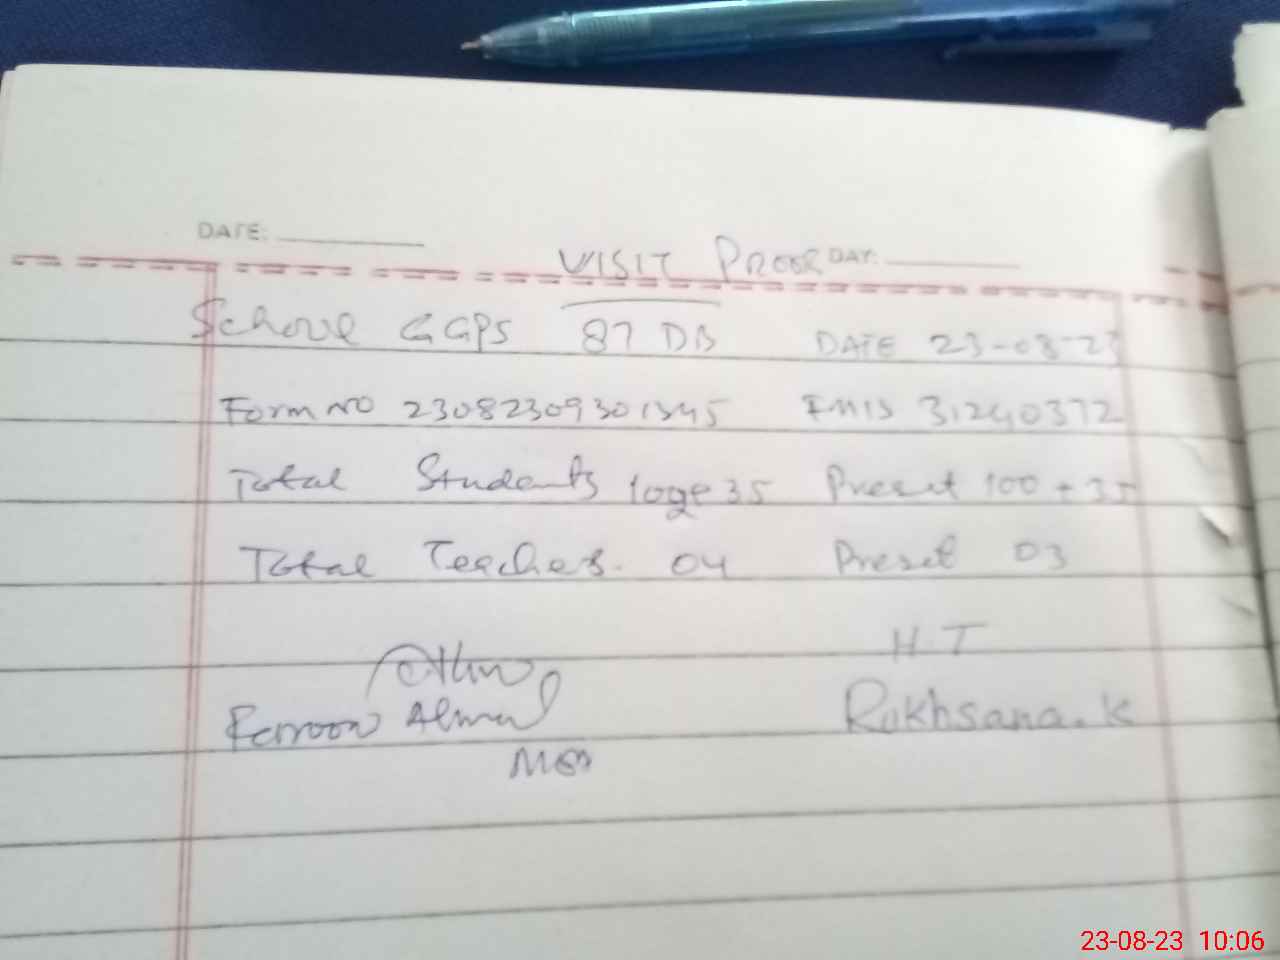 DATE:
VISIT PROOF DAY:
School GGPS 87 DB DATE 23-08-23
Form NO 23082309301345 EMIS 31240372
Total Students 35 Preset 100 + 35
Total Teachers. 04 Preset 03
H.T
Ahmad Rukhsana.K
23-08-23 10:06